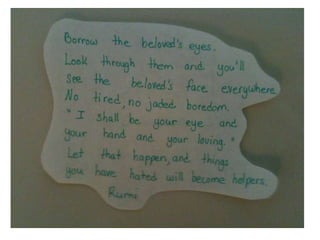 Borrow the beloved's eyes.
Look through them and you'll
see the beloved's face everywhere
No tired, no jaded boredom.
"I shall be your eye and
your hand and your loving."
Let that happen, and things
you have hated will become helpers.
Rumi